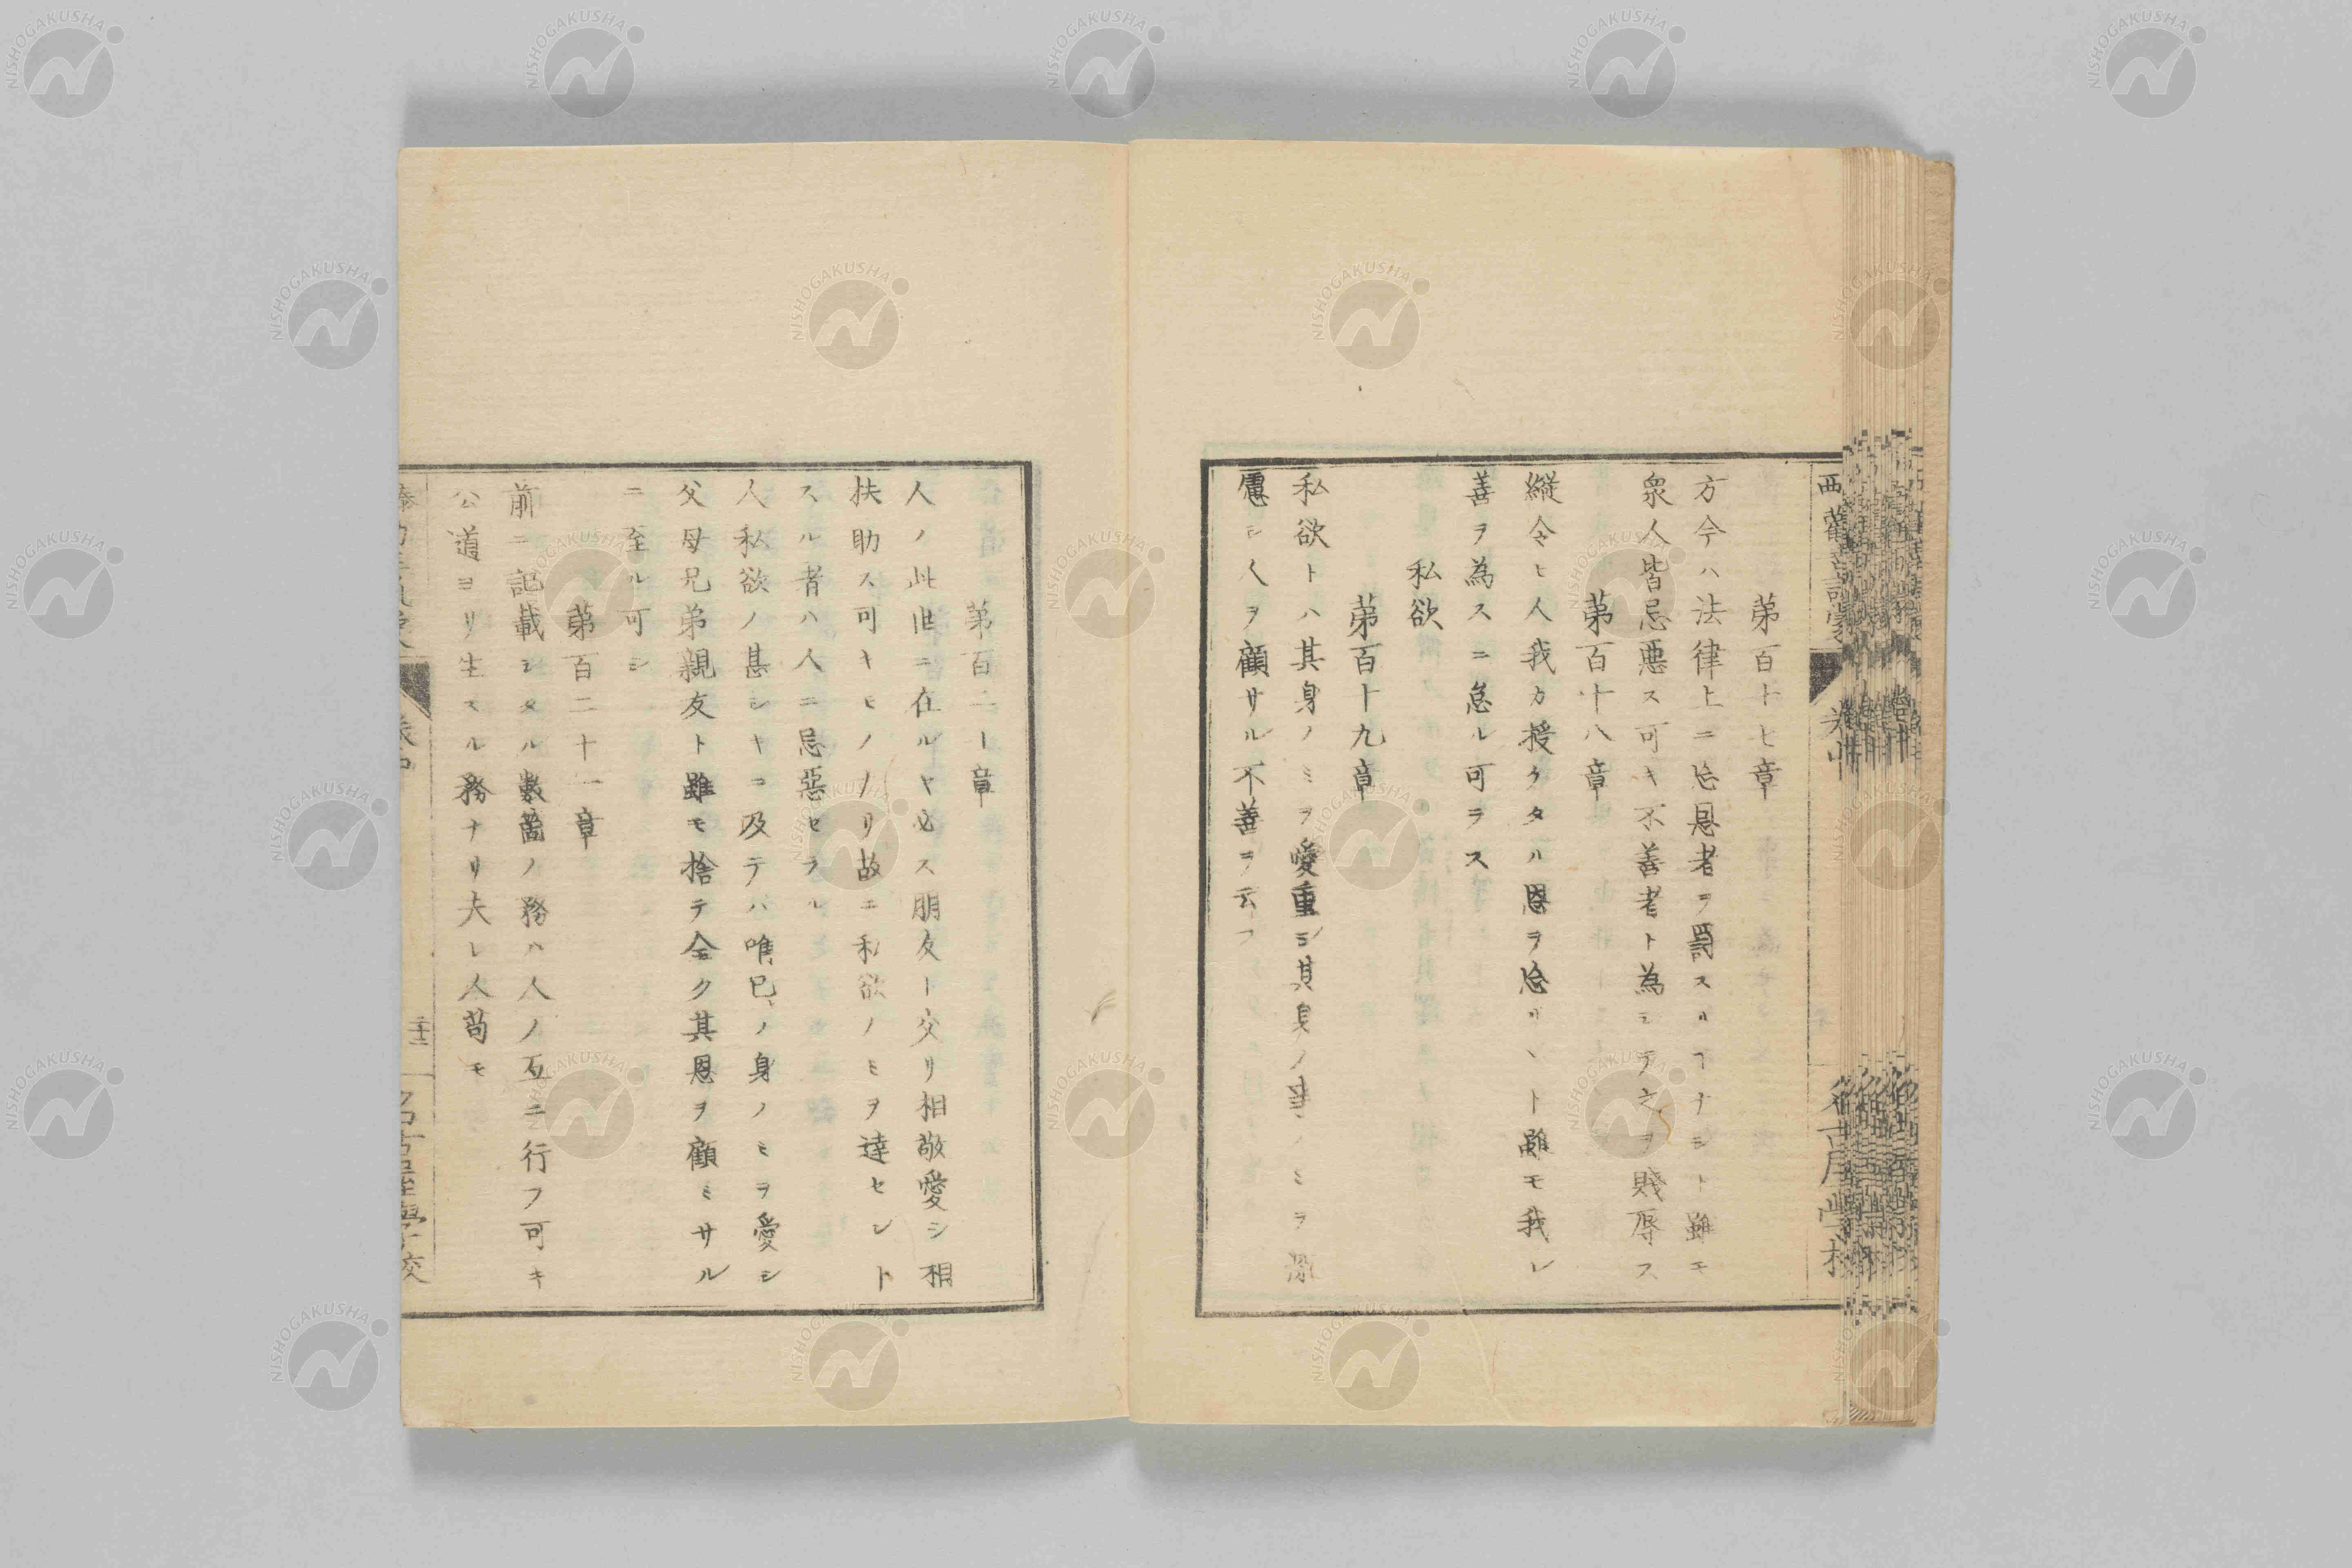 第百十七章
方今ハ法律上ニ忘恩者ヲ罰スルヿナシト雖モ
衆人皆忌悪ス可キ不善者ト為シテ之ヲ賤辱ス
第百十八章
縦令ヒ人我カ授ケタル恩ヲ忘ルヽト雖モ我レ
善ヲ為スニ怠ル可ラス
私欲
第百十九章
私欲トハ其身ノミヲ愛重シ其身ノ事ノミヲ深
慮シ人ヲ顧サル不善ヲ云フ
第百二十章
人ノ此世ニ在ルヤ必ス朋友ト交リ相敬愛シ相
扶助ス可キモノナリ故ニ私欲ノミヲ達セント
スル者ハ人ニ忌惡セラル
人私欲ノ甚シキニ及テハ唯已ノ身ノミヲ愛シ
父母兄弟親友ト雖モ捨テ全ク其恩ヲ顧ミサル
ニ至ル可シ
第百二十一章
前ニ記載シタル數箇ノ務ハ人ノ互ニ行フ可キ
公道ヨリ生スル務ナリ夫レ人苟モ
名古屋學校
NISHOGAKUSHA